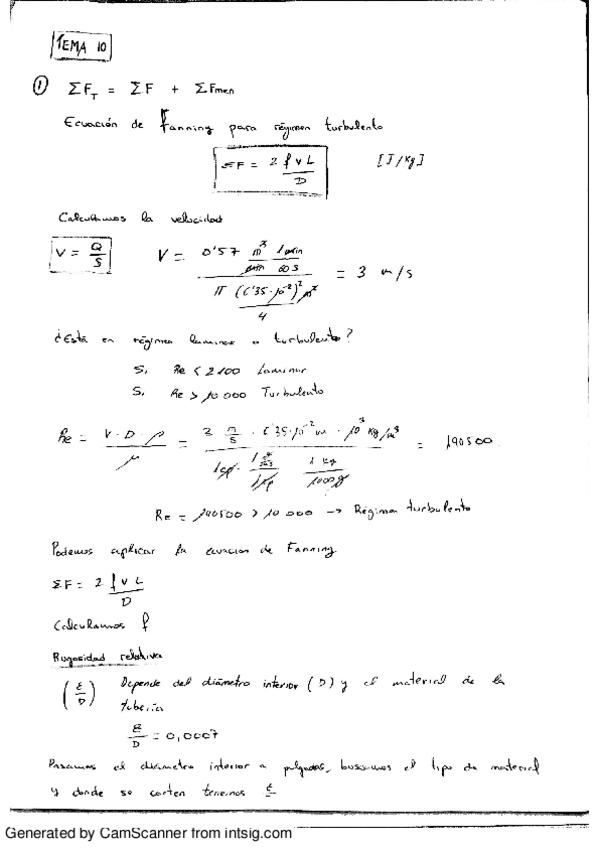 TEMA 10
① ΣF_T = ΣF + ΣFmen
Ecuación de Fanning para régimen turbulento
ΣF = 2 f v L / D [J/kg]
Calculamos la velocidad
V = Q / S V = 0'57 m³/min 1 min/60 s / π (6'35·10⁻²)² m² / 4 = 3 m/s
¿Está en régimen laminar o turbulento?
Si Re < 2100 Laminar
Si Re > 10000 Turbulento
Re = V · D · ρ / μ = 3 m/s · 6'35·10⁻² m · 10³ kg/m³ / 1cp · 1 kg / 1000 g = 190500
Re = 190500 > 10000 → Régimen turbulento
Podemos aplicar la ecuacion de Fanning
ΣF = 2 f v L / D
Calculamos f
Rugosidad relativa
(ε/D) Depende del diámetro interior (D) y el material de la
tubería
ε/D = 0,0007
Pasamos el diámetro interior a pulgadas, buscamos el tipo de material
y donde se corten tenemos ε
Generated by CamScanner from intsig.com